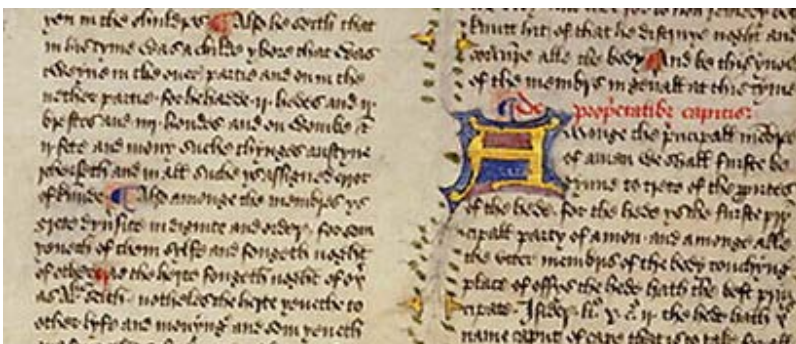 yen in the childes Also he seith that
in his tyme was a childe ybore that was
tweyne in the over partie and on in the
nether partie for he hadde ij hedes and ij
brestes and iiij hondes and on wombe &
ij fete and mony suche thynges austyne
reherseth and in all suche ys assigned error
of kynde Also amonge the membris ys
grete dyversite in dignite and ordere for som
yeveth of them sylfe and fongeth noght
of other as the herte fongeth noght of oþer
as Ar seith notheles the herte yeveth to
other lyfe and mevyng and som yeveth
knytt hit of that he distruye noght and
corrupe alle the body And be this ynow
of the membris in generall at this tyme
De proprietatibus capitis
Amonge the principall membris
of a man we shall furste be
gynne to trete of the propurtees
of the hede for the hede ys the furste prin
cipall party of a man and amonge alle
the utter membris of the body touchyng
place of offys the hede hath the best prin
cipate Isider li x c ij the hede hath þe
name caput of cape that is to take for all